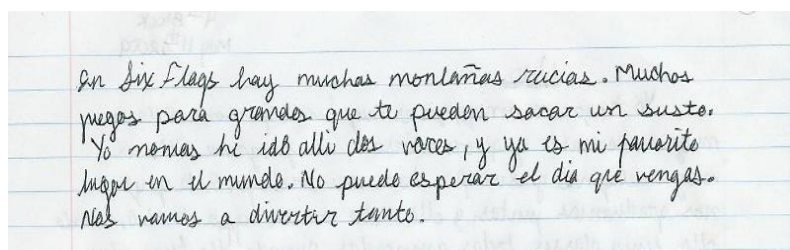 En Six Flags hay muchas montañas rucias. Muchos
juegos para grandes que te pueden sacar un susto.
Yo nomas he ido alli dos veces, y ya es mi pavorito
lugar en el mundo. No puedo esperar el dia que vengas.
Nos vamos a divertir tanto.